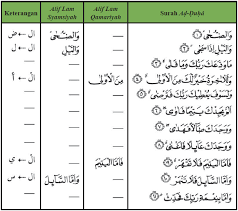 Keterangan | Alif Lam Syamsiyah | Alif Lam Qamariyah | Surah Aḍ-Ḍuḥā
ال ← ض | وَالضُّحٰىۙ | — | وَالضُّحٰىۙ ١
ال ← ل | وَالَّيْلِ | — | وَالَّيْلِ اِذَا سَجٰىۙ ٢
— | — | مَا وَدَّعَكَ رَبُّكَ وَمَا قَلٰىۗ ٣
ال ← أ | — | مِنَ الْاُوْلٰىۗ | وَلَلْاٰخِرَةُ خَيْرٌ لَّكَ مِنَ الْاُوْلٰىۗ ٤
— | — | وَلَسَوْفَ يُعْطِيْكَ رَبُّكَ فَتَرْضٰىۗ ٥
— | — | اَلَمْ يَجِدْكَ يَتِيْمًا فَاٰوٰىۖ ٦
— | — | وَوَجَدَكَ ضَاۤلًّا فَهَدٰىۖ ٧
— | — | وَوَجَدَكَ عَاۤىِٕلًا فَاَغْنٰىۗ ٨
ال ← ي | — | فَاَمَّا الْيَتِيْمَ | فَاَمَّا الْيَتِيْمَ فَلَا تَقْهَرْۗ ٩
ال ← س | وَاَمَّا السَّاۤىِٕلَ | — | وَاَمَّا السَّاۤىِٕلَ فَلَا تَنْهَرْۗ ١٠
— | — | وَاَمَّا بِنِعْمَةِ رَبِّكَ فَحَدِّثْ ١١